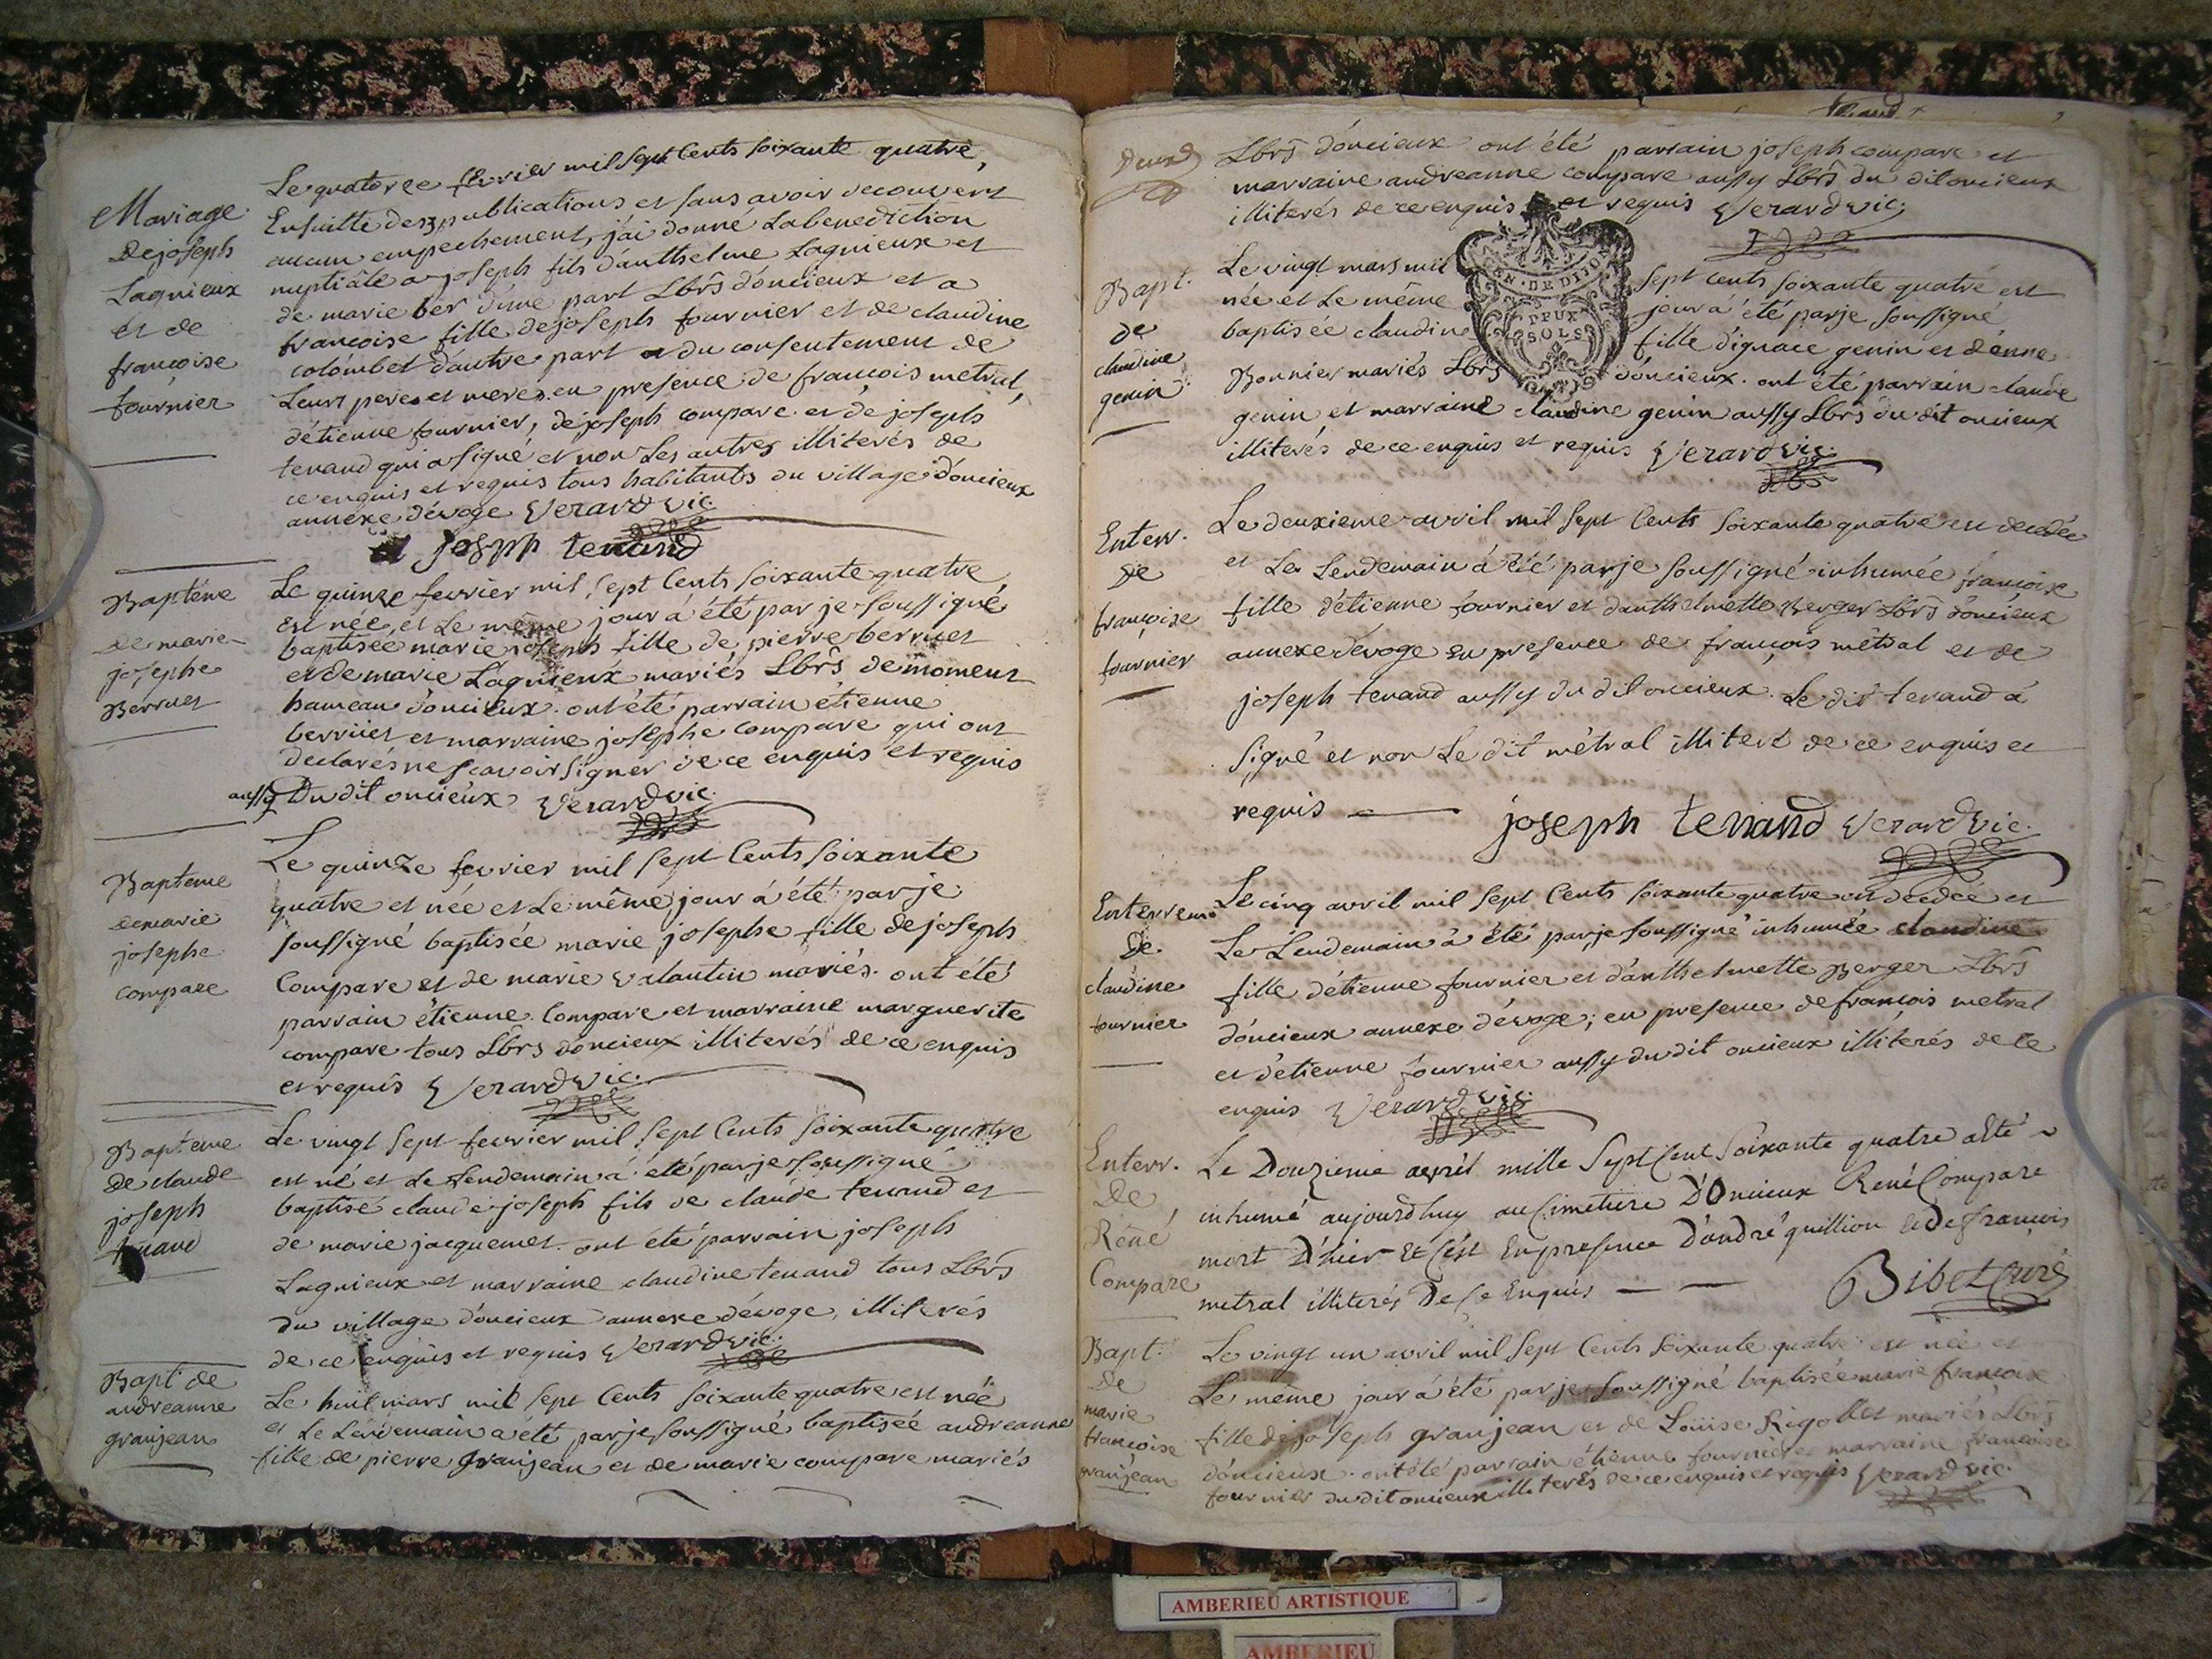 Mariage
de joseph
Lagnieux
et de
françoise
fournier
Le quatorze fevrier mil sept Cents soixante quatre,
Ensuitte des 3 publications et sans avoir decouvert
aucun empechement, j'ai donné La benediction
nuptiâle a joseph fils d'anthelme Lagnieux et
de marie ber d'une part Lbrs d'oncieux et a
françoise fille de joseph fournier et de claudine
colombet d'autre part et du consentement de
Leurs peres et meres en presence de françois metral,
d'étienne fournier, de joseph compare et de joseph
tenand qui a signé et non Les autres illiterés de
ce enquis et requis tous habitants du village d'oncieux
annexe d'evoge Verard vic.
joseph tenand
Baptême
de marie
josephe
Berruet
Le quinze fevrier mil sept Cents soixante quatre
est née et Le même jour à été par je soussigné
baptisée marie joseph fille de pierre berruet
et de marie Lagnieux mariés Lbrs de moment
hameau d'oncieux. ont été parrain étienne
berruet et marraine josephe compare qui ont
declarés ne scavoir signer de ce enquis et requis
aussy du dit oncieux Verard vic.
Bapteme
de marie
josephe
compare
Le quinze fevrier mil sept Cents soixante
quatre et née et Le même jour à été par je
soussigné baptisée marie josephe fille de joseph
Compare et de marie valantin mariés. ont été
parrain étienne Compare et marraine marguerite
compare tous Lbrs d'oncieux illiterés de ce enquis
et requis Verard vic.
Baptême
de claude
joseph
tenand
Le vingt sept fevrier mil sept Cents soixante quatre
est né et Le Lendemain à été par je soussigné
baptisé claude joseph fils de claude tenand et
de marie jacquemet. ont été parrain joseph
Lagnieux et marraine claudine tenand tous Lbrs
du village d'oncieux annexe d'evoge, illiterés
de ce enquis et requis Verard vic.
Bapt. de
andreanne
granjean
Le huit mars mil sept Cents soixante quatre est née
et Le Lendemain à été par je soussigné baptisée andreanne
fille de pierre granjean et de marie compare mariés
Deux
Lbrs d'oncieux ont été parrain joseph compare et
marraine andreanne compare aussy Lbrs du dit oncieux
illiterés de ce enquis et requis Verard vic.
GEN. DE DIJON
DEUX
SOLS
Bapt.
de
claudine
genin
Le vingt mars mil sept Cents soixante quatre est
née et Le même jour à été par je soussigné
baptisée claudine fille d'ignace genin et d'enne
Bonnier mariés Lbrs d'oncieux. ont été parrain claude
genin et marraine claudine genin aussy Lbrs du dit oncieux
illiterés de ce enquis et requis Verard vic.
Enterr.
de
françoise
fournier
Le deuxieme avril mil sept Cents soixante quatre est decedée
et Le Lendemain à été par je soussigné inhumée françoise
fille d'étienne fournier et d'anthelmette Berger Lbrs d'oncieux
annexe d'evoge en presence de françois métral et de
joseph tenand aussy du dit oncieux. Le dit tenand à
signé et non Le dit métral illiteré de ce enquis et
requis joseph tenand Verard vic.
Enterrem.
De
claudine
fournier
Le cinq avril mil sept Cents soixante quatre est decedée et
Le Lendemain à été par je soussigné inhumée claudine
fille d'étienne fournier et d'anthelmette Berger Lbrs
d'oncieux annexe d'evoge; en presence de françois metral
et d'étienne fournier aussy du dit oncieux illiterés de ce
enquis Verard vic.
Enterr.
De
Réné
Compare
Le Douzieme avril mille Sept Cent Soixante quatre a été
inhumé aujourdhuy au Cimetiere D'Oncieux René Compare
mort D'hier Et C'est En presence D'andré quillion et de francois
metral illiterés De Ce Enquis Bibet Curé
Bapt.
De
marie
francoise
granjean
Le vingt un avril mil sept Cents soixante quatre est née et
Le même jour à été par je soussigné baptisée marie françoise
fille de joseph granjean et de Loüise Rigollet mariés Lbrs
d'oncieux. ont été parrain étienne fournier et marraine françoise
fournier du dit oncieux illiterés de ce enquis et requis Verard vic.
AMBERIEU ARTISTIQUE
AMBERIEU